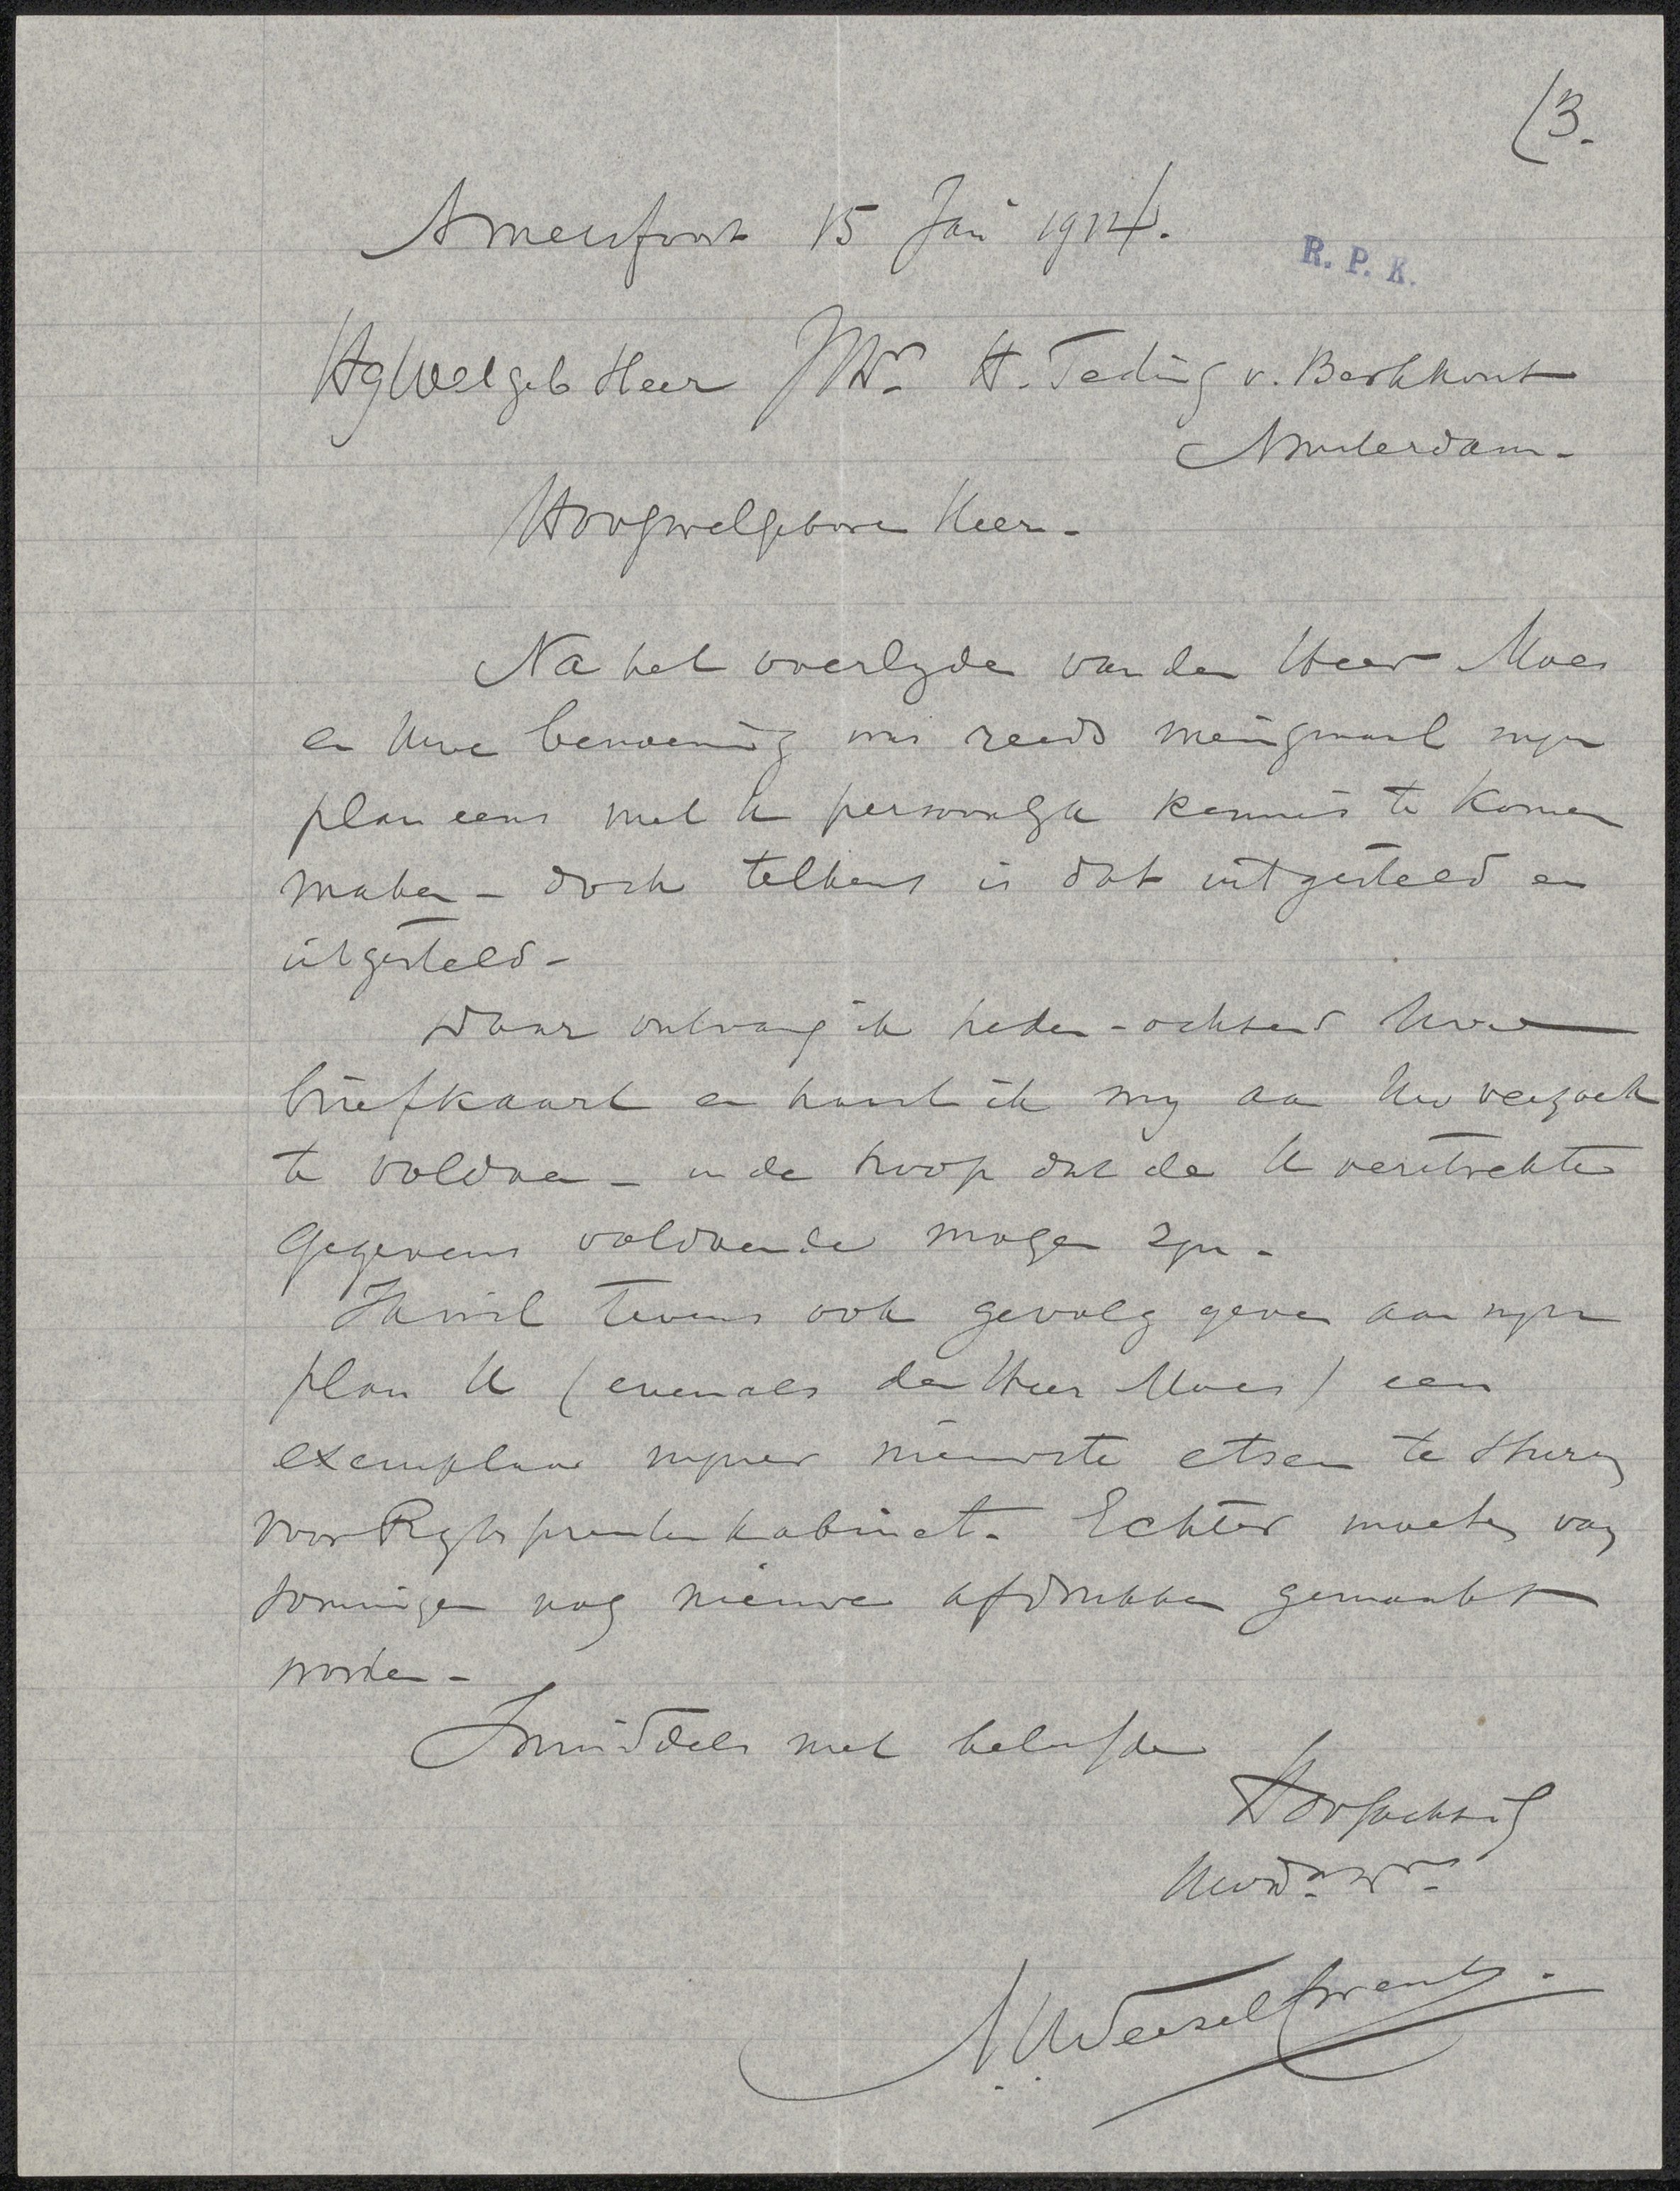 (3.
Amersfoort 15 Jan 1914.
R. P. K.
HgWelgeb Heer JMr. H. Teding v. Berkhout
Amsterdam -
Hoogwelgeboren Heer -
Na het overlyden van den Heer Moes
en Uwe benoeming was reeds menigmaal myn
plan eens met U persoonlyk kennis te komen
maken - doch telkens is dat uitgesteld en
uitgesteld -
Daar ontvang ik heden-ochtend Uwe
briefkaart en haast ik my aan Uw verzoek
te voldoen - in de hoop dat de U verstrekte
gegevens voldoende mogen zyn -
Ik wil tevens ook gevolg geven aan myn
plan U (evenals den Heer Moes) een
exemplaar myner nieuwste etsen te sturen
voor Ryksprentenkabinet. Echter moeten van
sommigen nog nieuwe afdrukken gemaakt
worden -
Inmiddels met beleefde
Hoogachting
Uwdn. Dr.